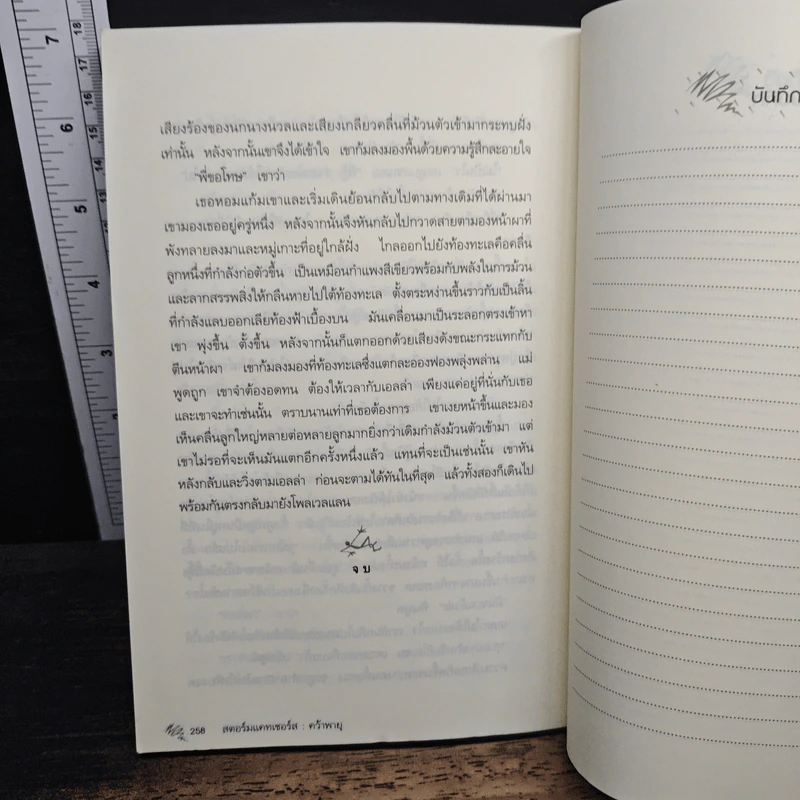 เสียงร้องของนกนางนวลและเสียงเกลียวคลื่นที่ม้วนตัวเข้ามากระทบฝั่ง
เท่านั้น หลังจากนั้นเขาจึงได้เข้าใจ เขาก้มลงมองพื้นด้วยความรู้สึกละอายใจ
"พี่ขอโทษ" เขาว่า
เธอหอมแก้มเขาและเริ่มเดินย้อนกลับไปตามทางเดิมที่ได้ผ่านมา
เขามองเธออยู่ครู่หนึ่ง หลังจากนั้นจึงหันกลับไปกวาดสายตามองหน้าผาที่
พังทลายลงมาและหมู่เกาะที่อยู่ใกล้ฝั่ง ไกลออกไปยังท้องทะเลคือคลื่น
ลูกหนึ่งที่กำลังก่อตัวขึ้น เป็นเหมือนกำแพงสีเขียวพร้อมกับพลังในการม้วน
และลากสรรพสิ่งให้กลืนหายไปใต้ท้องทะเล ตั้งตระหง่านขึ้นราวกับเป็นลิ้น
ที่กำลังแลบออกเลียท้องฟ้าเบื้องบน มันเคลื่อนมาเป็นระลอกตรงเข้าหา
เขา พุ่งขึ้น ตั้งขึ้น หลังจากนั้นก็แตกออกด้วยเสียงดังขณะกระแทกกับ
ตีนหน้าผา เขาก้มลงมองที่ท้องทะเลซึ่งแตกละอองฟองพลุ่งพล่าน แม่
พูดถูก เขาจำต้องอดทน ต้องให้เวลากับเอลล่า เพียงแค่อยู่ที่นั่นกับเธอ
และเขาจะทำเช่นนั้น ตราบนานเท่าที่เธอต้องการ เขาเงยหน้าขึ้นและมอง
เห็นคลื่นลูกใหญ่หลายต่อหลายลูกมากยิ่งกว่าเดิมกำลังม้วนตัวเข้ามา แต่
เขาไม่รอที่จะเห็นมันแตกอีกครั้งหนึ่งแล้ว แทนที่จะเป็นเช่นนั้น เขาหัน
หลังกลับและวิ่งตามเอลล่า ก่อนจะตามได้ทันในที่สุด แล้วทั้งสองก็เดินไป
พร้อมกันตรงกลับมายังโพลเวลแลน
จบ
258 สตอร์มแคทเชอร์ส : คว้าพายุ
บันทึก
18
17
16
15
14
13
12
11
10
9
8
7
6
5
4
3